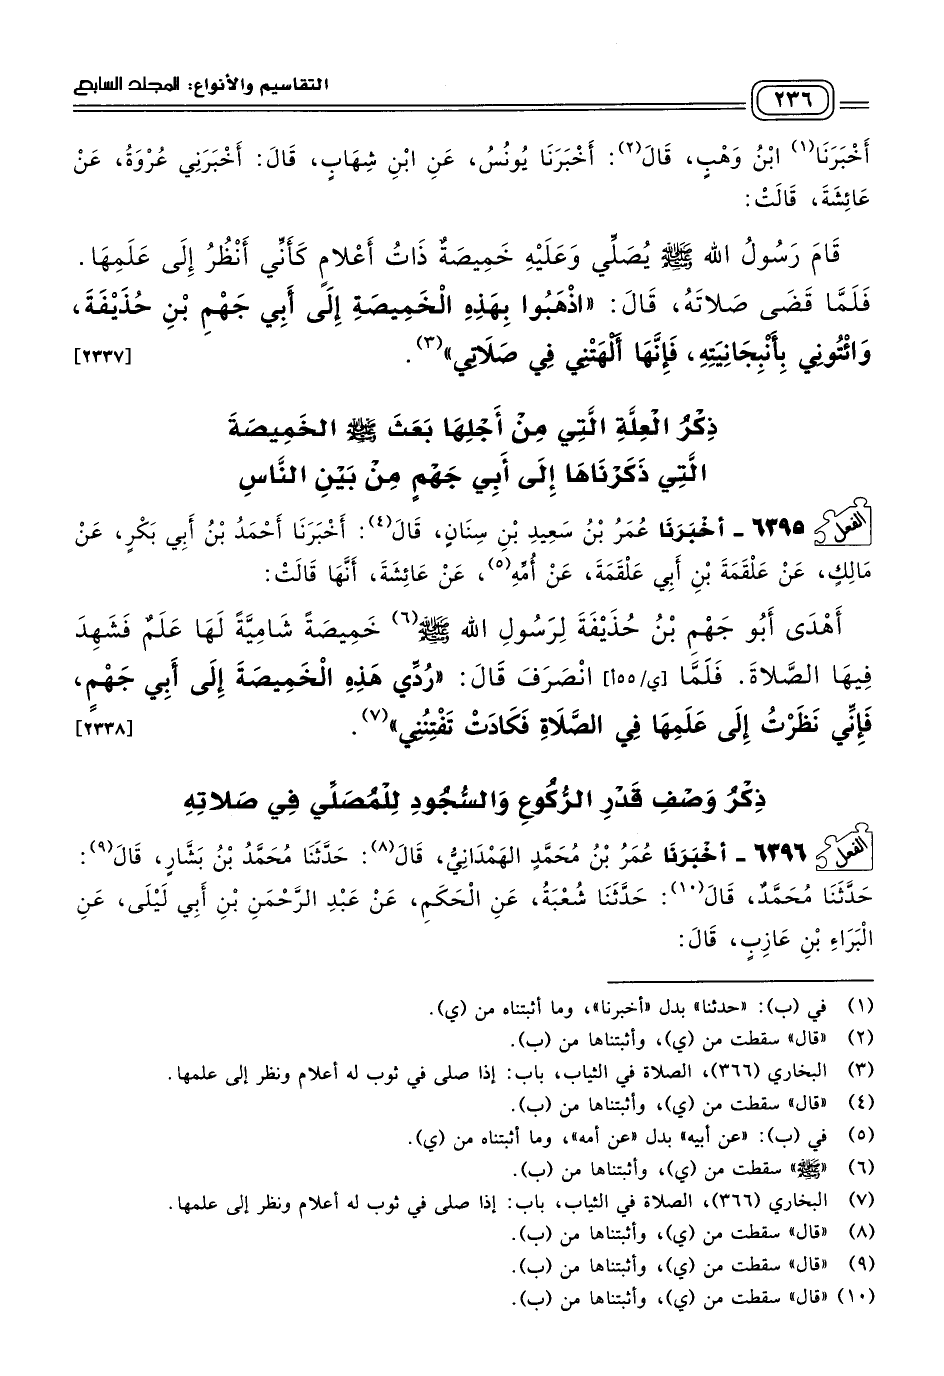 التقاسيم والأنواع: المجلد السابع
٢٣٦
أَخْبَرَنَا(١) ابْنُ وَهْبٍ، قَالَ(٢): أَخْبَرَنَا يُونُسُ، عَنِ ابْنِ شِهَابٍ، قَالَ: أَخْبَرَنِي عُرْوَةُ، عَنْ
عَائِشَةَ، قَالَتْ:
قَامَ رَسُولُ اللهِ ﷺ يُصَلِّي وَعَلَيْهِ خَمِيصَةٌ ذَاتُ أَعْلَامٍ كَأَنِّي أَنْظُرُ إِلَى عَلَمِهَا.
فَلَمَّا قَضَى صَلاتَهُ، قَالَ: «اذْهَبُوا بِهَذِهِ الْخَمِيصَةِ إِلَى أَبِي جَهْمِ بْنِ حُذَيْفَةَ،
وَائْتُونِي بِأَنْبِجَانِيَتِهِ، فَإِنَّهَا أَلْهَتْنِي فِي صَلَاتِي»(٣). [٢٣٣٧]
ذِكْرُ الْعِلَّةِ الَّتِي مِنْ أَجْلِهَا بَعَثَ ﷺ الخَمِيصَةَ
الَّتِي ذَكَرْنَاهَا إِلَى أَبِي جَهْمٍ مِنْ بَيْنِ النَّاسِ
الفعل ٦٣٩٥ - أخْبَرَنَا عُمَرُ بْنُ سَعِيدِ بْنِ سِنَانٍ، قَالَ(٤): أَخْبَرَنَا أَحْمَدُ بْنُ أَبِي بَكْرٍ، عَنْ
مَالِكٍ، عَنْ عَلْقَمَةَ بْنِ أَبِي عَلْقَمَةَ، عَنْ أُمِّهِ(٥)، عَنْ عَائِشَةَ، أَنَّهَا قَالَتْ:
أَهْدَى أَبُو جَهْمِ بْنُ حُذَيْفَةَ لِرَسُولِ اللهِ ﷺ(٦) خَمِيصَةً شَامِيَّةً لَهَا عَلَمٌ فَشَهِدَ
فِيهَا الصَّلاةَ. فَلَمَّا [ي/٥٥أ] انْصَرَفَ قَالَ: «رُدِّي هَذِهِ الْخَمِيصَةَ إِلَى أَبِي جَهْمٍ،
فَإِنِّي نَظَرْتُ إِلَى عَلَمِهَا فِي الصَّلَاةِ فَكَادَتْ تَفْتِنُنِي»(٧). [٢٣٣٨]
ذِكْرُ وَصْفِ قَدْرِ الرُّكُوعِ وَالسُّجُودِ لِلْمُصَلِّي فِي صَلاتِهِ
الفعل ٦٣٩٦ - أخْبَرَنَا عُمَرُ بْنُ مُحَمَّدٍ الهَمْدَانِيُّ، قَالَ(٨): حَدَّثَنَا مُحَمَّدُ بْنُ بَشَّارٍ، قَالَ(٩):
حَدَّثَنَا مُحَمَّدٌ، قَالَ(١٠): حَدَّثَنَا شُعْبَةُ، عَنِ الْحَكَمِ، عَنْ عَبْدِ الرَّحْمَنِ بْنِ أَبِي لَيْلَى، عَنِ
الْبَرَاءِ بْنِ عَازِبٍ، قَالَ:
(١) في (ب): «حدثنا» بدل «أخبرنا»، وما أثبتناه من (ي).
(٢) «قال» سقطت من (ي)، وأثبتناها من (ب).
(٣) البخاري (٣٦٦)، الصلاة في الثياب، باب: إذا صلى في ثوب له أعلام ونظر إلى علمها.
(٤) «قال» سقطت من (ي)، وأثبتناها من (ب).
(٥) في (ب): «عن أبيه» بدل «عن أمه»، وما أثبتناه من (ي).
(٦) «ﷺ» سقطت من (ي)، وأثبتناها من (ب).
(٧) البخاري (٣٦٦)، الصلاة في الثياب، باب: إذا صلى في ثوب له أعلام ونظر إلى علمها.
(٨) «قال» سقطت من (ي)، وأثبتناها من (ب).
(٩) «قال» سقطت من (ي)، وأثبتناها من (ب).
(١٠) «قال» سقطت من (ي)، وأثبتناها من (ب).